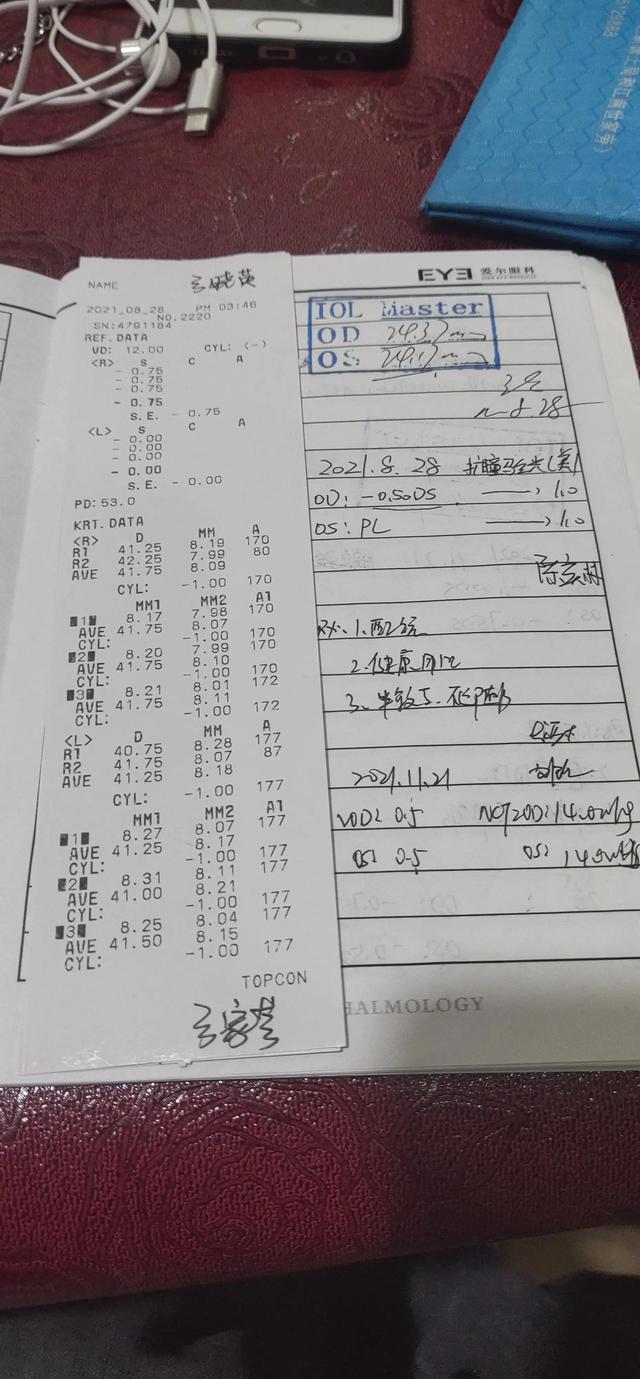 NAME
2021_08_28 PM 03:46
NO.2220
SN:4791184
REF.DATA
VD: 12.00 CYL: (-)
<R> S C A
- 0.75
- 0.75
- 0.75
- 0.75
S.E. - 0.75
<L> S C A
- 0.00
- 0.00
- 0.00
- 0.00
S.E. - 0.00
PD:53.0
KRT.DATA
<R> D MM A
R1 41.25 8.19 170
R2 42.25 7.99 80
AVE 41.75 8.09
CYL: -1.00 170
MM1 MM2 A1
1 8.17 7.98 170
AVE 41.75 8.07
CYL: -1.00 170
2 8.20 7.99 170
AVE 41.75 8.10
CYL: -1.00 170
3 8.21 8.01 172
AVE 41.75 8.11
CYL: -1.00 172
<L> D MM A
R1 40.75 8.28 177
R2 41.75 8.07 87
AVE 41.25 8.18
CYL: -1.00 177
MM1 MM2 A1
1 8.27 8.07 177
AVE 41.25 8.17
CYL: -1.00 177
2 8.31 8.11 177
AVE 41.00 8.21
CYL: -1.00 177
3 8.25 8.04 177
AVE 41.50 8.15
CYL: -1.00 177
TOPCON
EYE 爱尔眼科
IOL Master
OD 24.37mm
OS 24.17mm
2021.8.28 扩瞳验光
OD: -0.50DS → 1.0
OS: PL → 1.0
1.配镜
2.健康用眼
3.
2021.11.21
VOD: 0.5
OS: 0.5 OS:
HALMOLOGY